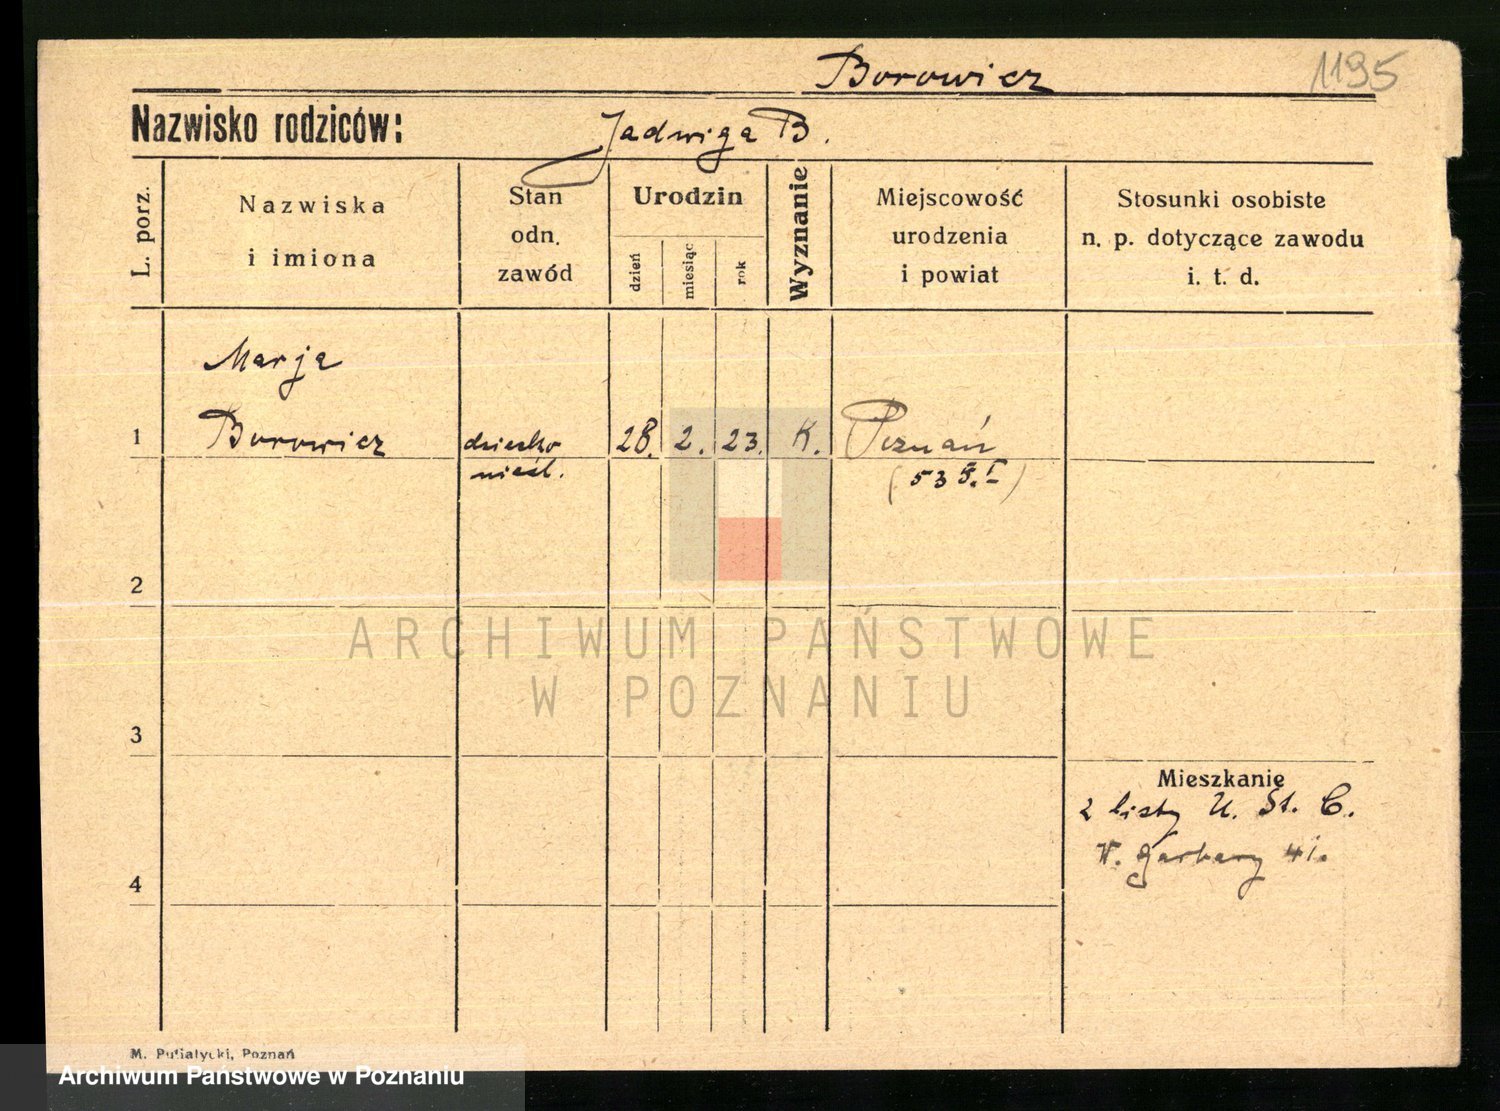 Borowicz 1195
Nazwisko rodziców: Jadwiga B.
L. porz.
Nazwiska
i imiona
Stan
odn.
zawód
Urodzin
dzień
miesiąc
rok
Wyznanie
Miejscowość
urodzenia
i powiat
Stosunki osobiste
n. p. dotyczące zawodu
i. t. d.
Marja
1 Borowicz dziecko 28. 2. 23. K. Poznań
nieśl.
2
ARCHIWUM PAŃSTWOWE
W POZNANIU
3
Mieszkanie
2 listy U. St. C.
W. Garbary 41.
4
M. Putiatycki, Poznań
Archiwum Państwowe w Poznaniu